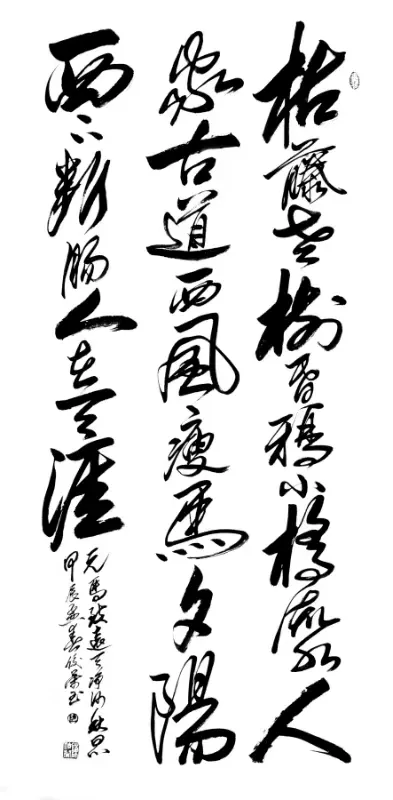 枯藤老樹昏鴉小橋流水人
家古道西風瘦馬夕陽
西下断腸人在天涯
元馬致遠天淨沙秋思
甲辰孟春俊